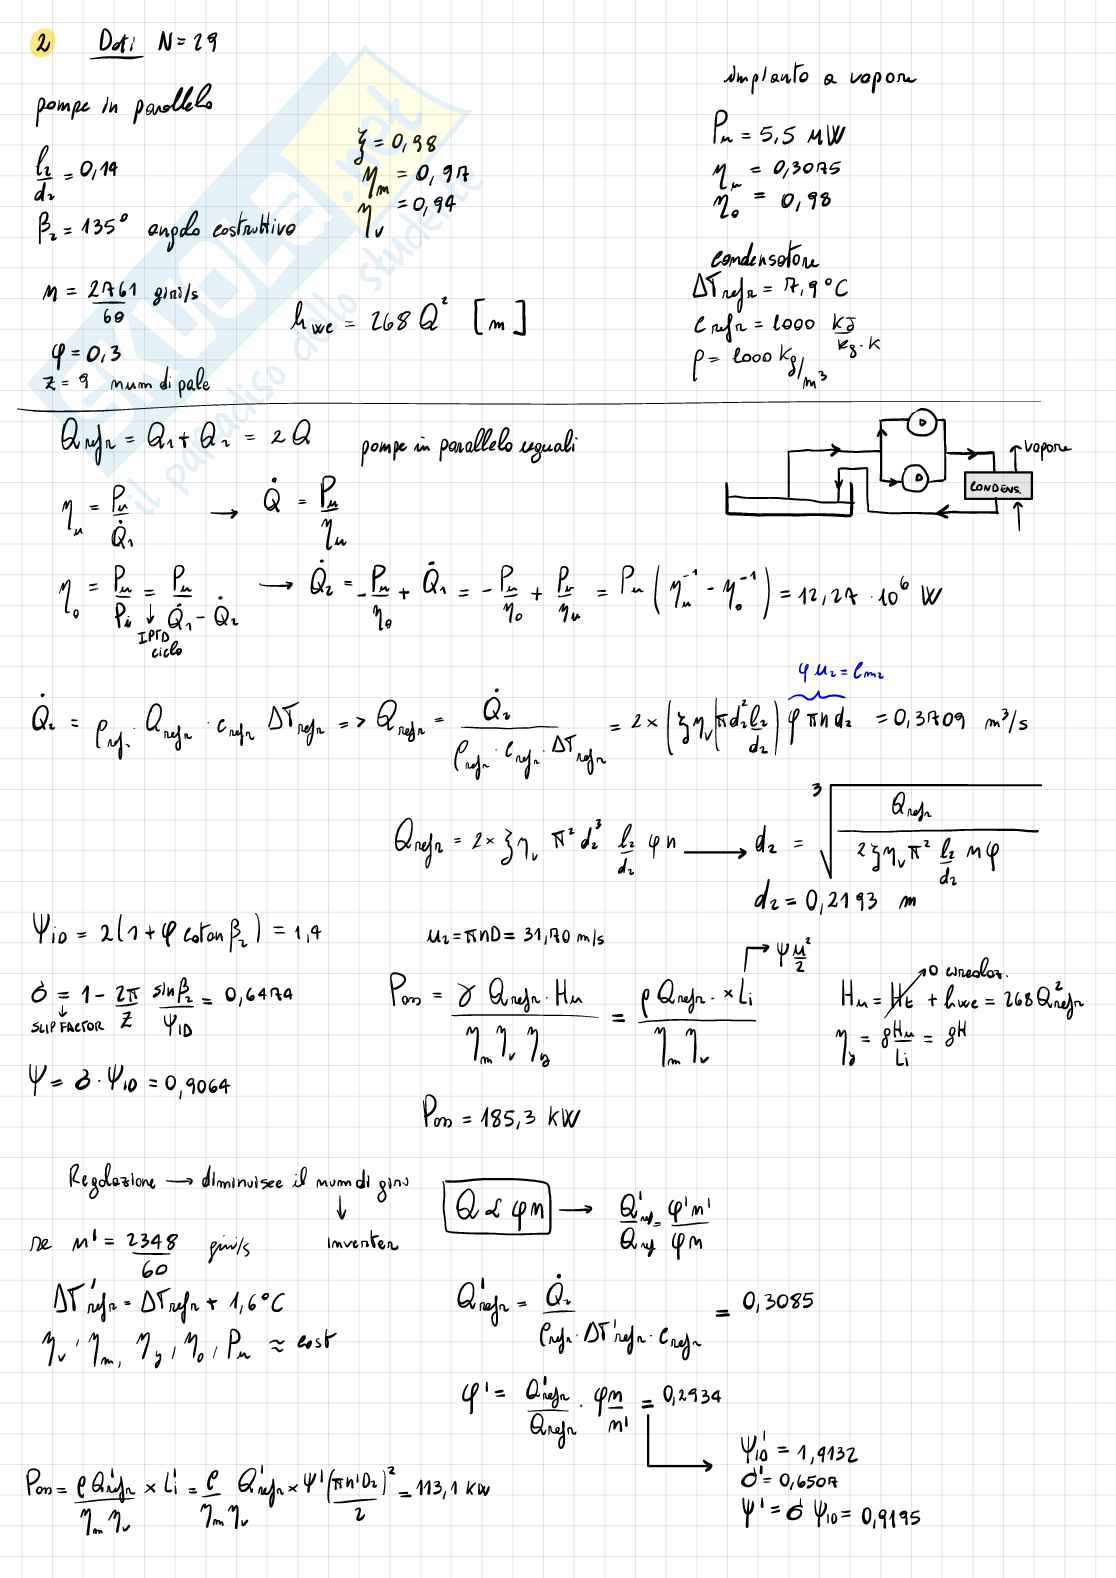 2 Dati N=29
pompe in parallelo
l₂/d₂ = 0,14
β₂ = 135° angolo costruttivo
n = 2761/60 giri/s
φ = 0,3
z = 9 num di pale
ξ = 0,98
ηm = 0,97
ηv = 0,94
hwe = 268 Q² [m]
impianto a vapore
Pu = 5,5 MW
ηu = 0,3075
ηo = 0,98
condensatore
ΔTrefr = 7,9°C
crefr = 1000 kJ/kg·K
ρ = 1000 kg/m³
Qrefr = Q₁ + Q₂ = 2Q pompe in parallelo uguali
vapore
CONDENS.
ηu = Pu/Q̇₁ → Q̇ = Pu/ηu
ηo = Pu/Pi = Pu/(Q̇₁ - Q̇₂) → Q̇₂ = -Pu/ηo + Q̇₁ = -Pu/ηo + Pu/ηu = Pu(ηu⁻¹ - ηo⁻¹) = 12,27 · 10⁶ W
ciclo
φ u₂ = cm₂
Q̇₂ = ρref. Qrefr · crefr ΔTrefr => Qrefr = Q̇₂/(ρrefr · crefr · ΔTrefr) = 2 × (ξ ηv π d₂² l₂/d₂) φ π n d₂ = 0,3709 m³/s
Qrefr = 2 × ξ ηv π² d₂³ l₂/d₂ φ n → d₂ = ³√(Qrefr/(2 ξ ηv π² l₂/d₂ n φ))
d₂ = 0,2193 m
ΨID = 2(1 + φ cotan β₂) = 1,4
u₂ = π n D = 31,70 m/s
Ψ u²/2
σ = 1 - 2π/z sinβ₂/ΨID = 0,6474
SLIP FACTOR
Pass = γ Qrefr · Hu/(ηm ηv ηy) = ρ Qrefr · × Li/(ηm ηv)
Hu = Ht + hwe = 268 Q²refr
ηy = gHu/Li = gH
Ψ = σ · ΨID = 0,9064
Pass = 185,3 kW
Regolazione → diminuisce il num di giri
↓
inverter
Q ∝ φn → Q'ref/Qref = φ'n'/φn
se n' = 2348/60 giri/s
ΔT'refr = ΔTrefr + 1,6°C
ηv, ηm, ηy, ηo, Pu ≈ cost
Q'refr = Q̇₂/(ρrefr · ΔT'refr · crefr) = 0,3085
φ' = Q'refr/Qrefr · φn/n' = 0,2934
Ψ'ID = 1,4132
σ' = 0,6507
Ψ' = σ ΨID = 0,9195
Pass = ρ Q'refr/(ηm ηv) × Li' = ρ/(ηm ηv) Q'refr × Ψ' (π n' D₂)²/2 = 113,1 kW